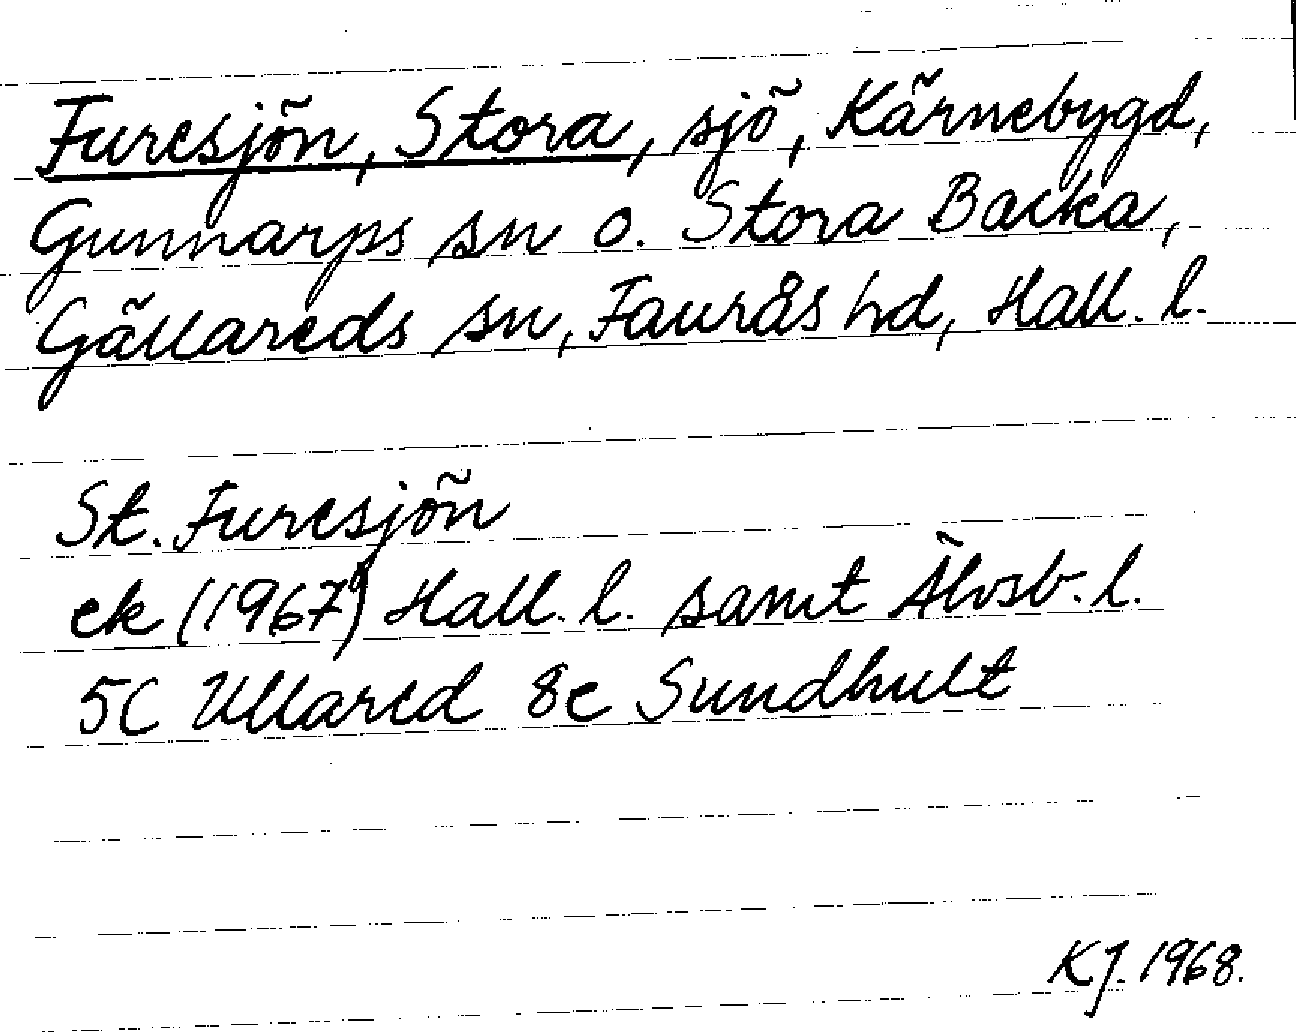 Furesjön, Stora, sjö, Kärnebygd,
Gunnarps sn o. Stora Backa,
Gällareds sn, Faurås hd, Hall. l.
St. Furesjön
ek (1967) Hall. l. samt Älvsb. l.
5C Ullared 8e Sundhult
KJ. 1968.